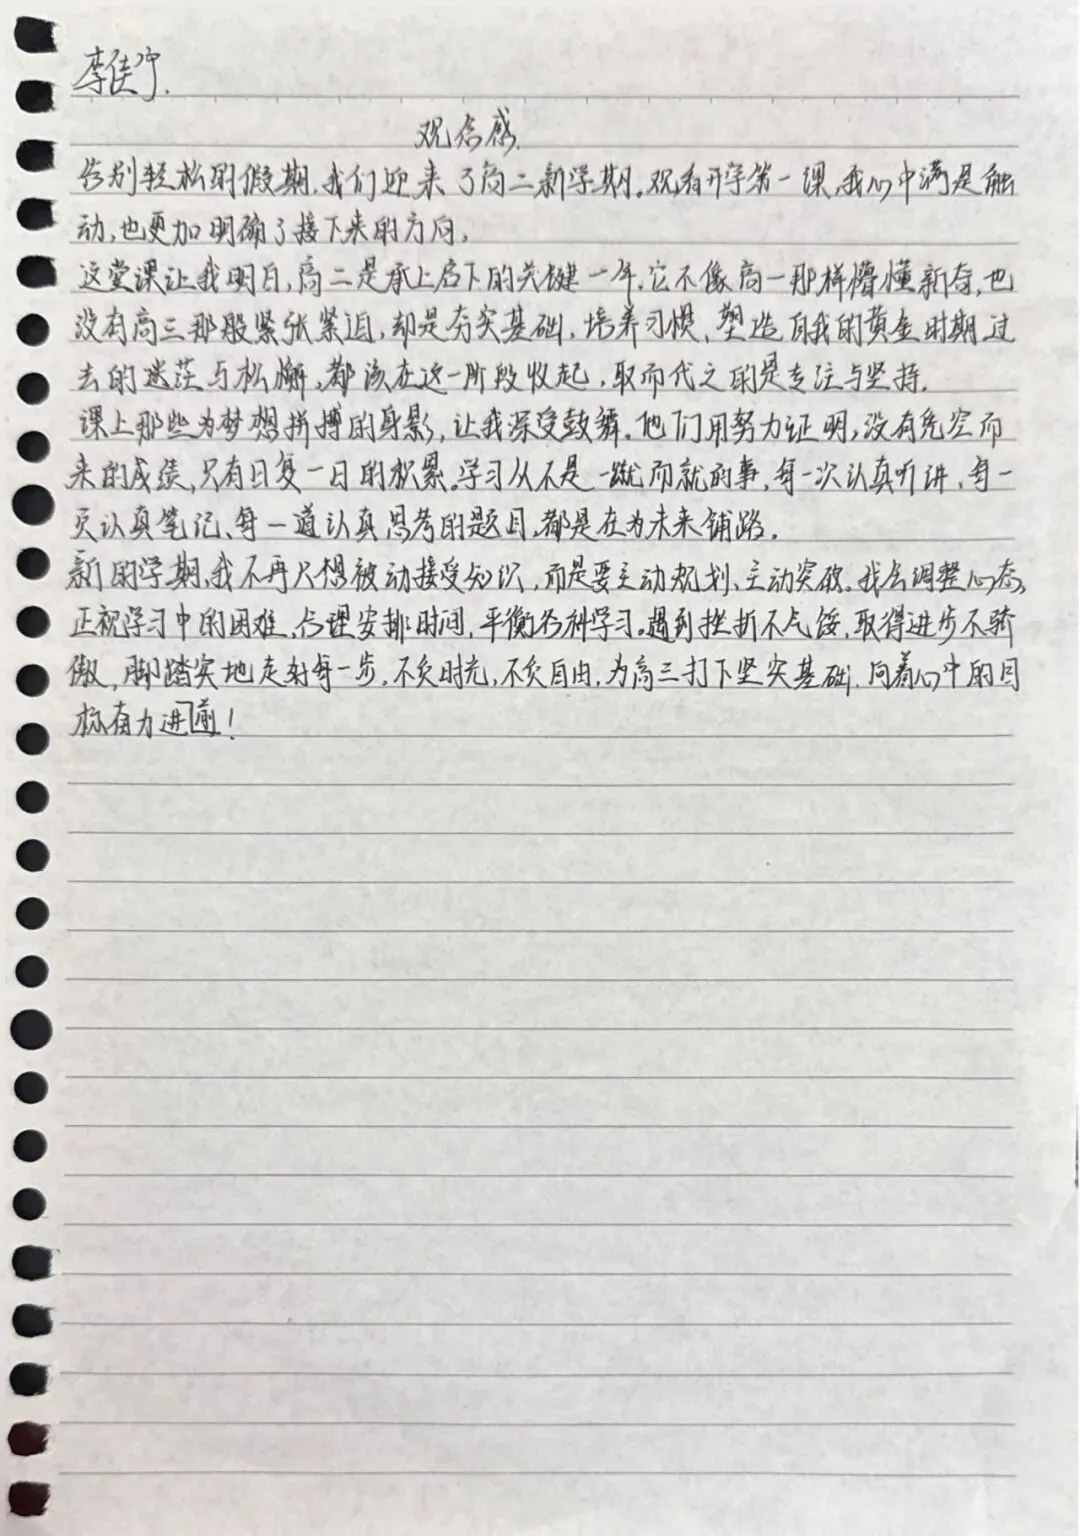 李佳宁.
观后感.
告别轻松的假期,我们迎来了高二新学期。观看开学第一课,我心中满是触
动,也更加明确了接下来的方向。
这堂课让我明白,高二是承上启下的关键一年,它不像高一那样懵懂新奇,也
没有高三那般紧张紧迫,却是夯实基础,培养习惯、塑造自我的黄金时期,过
去的迷茫与松懈,都该在这一阶段收起,取而代之的是专注与坚持.
课上那些为梦想拼搏的身影,让我深受鼓舞。他们用努力证明,没有凭空而
来的成绩,只有日复一日的积累。学习从不是一蹴而就的事,每一次认真听讲、每一
页认真笔记、每一道认真思考的题目,都是在为未来铺路。
新的学期,我不再只想被动接受知识,而是要主动规划、主动突破。我会调整心态,
正视学习中的困难,合理安排时间,平衡各科学习。遇到挫折不气馁,取得进步不骄
傲,脚踏实地走好每一步,不负时光,不负自由,为高三打下坚实基础,向着心中的目
标奋力进前!